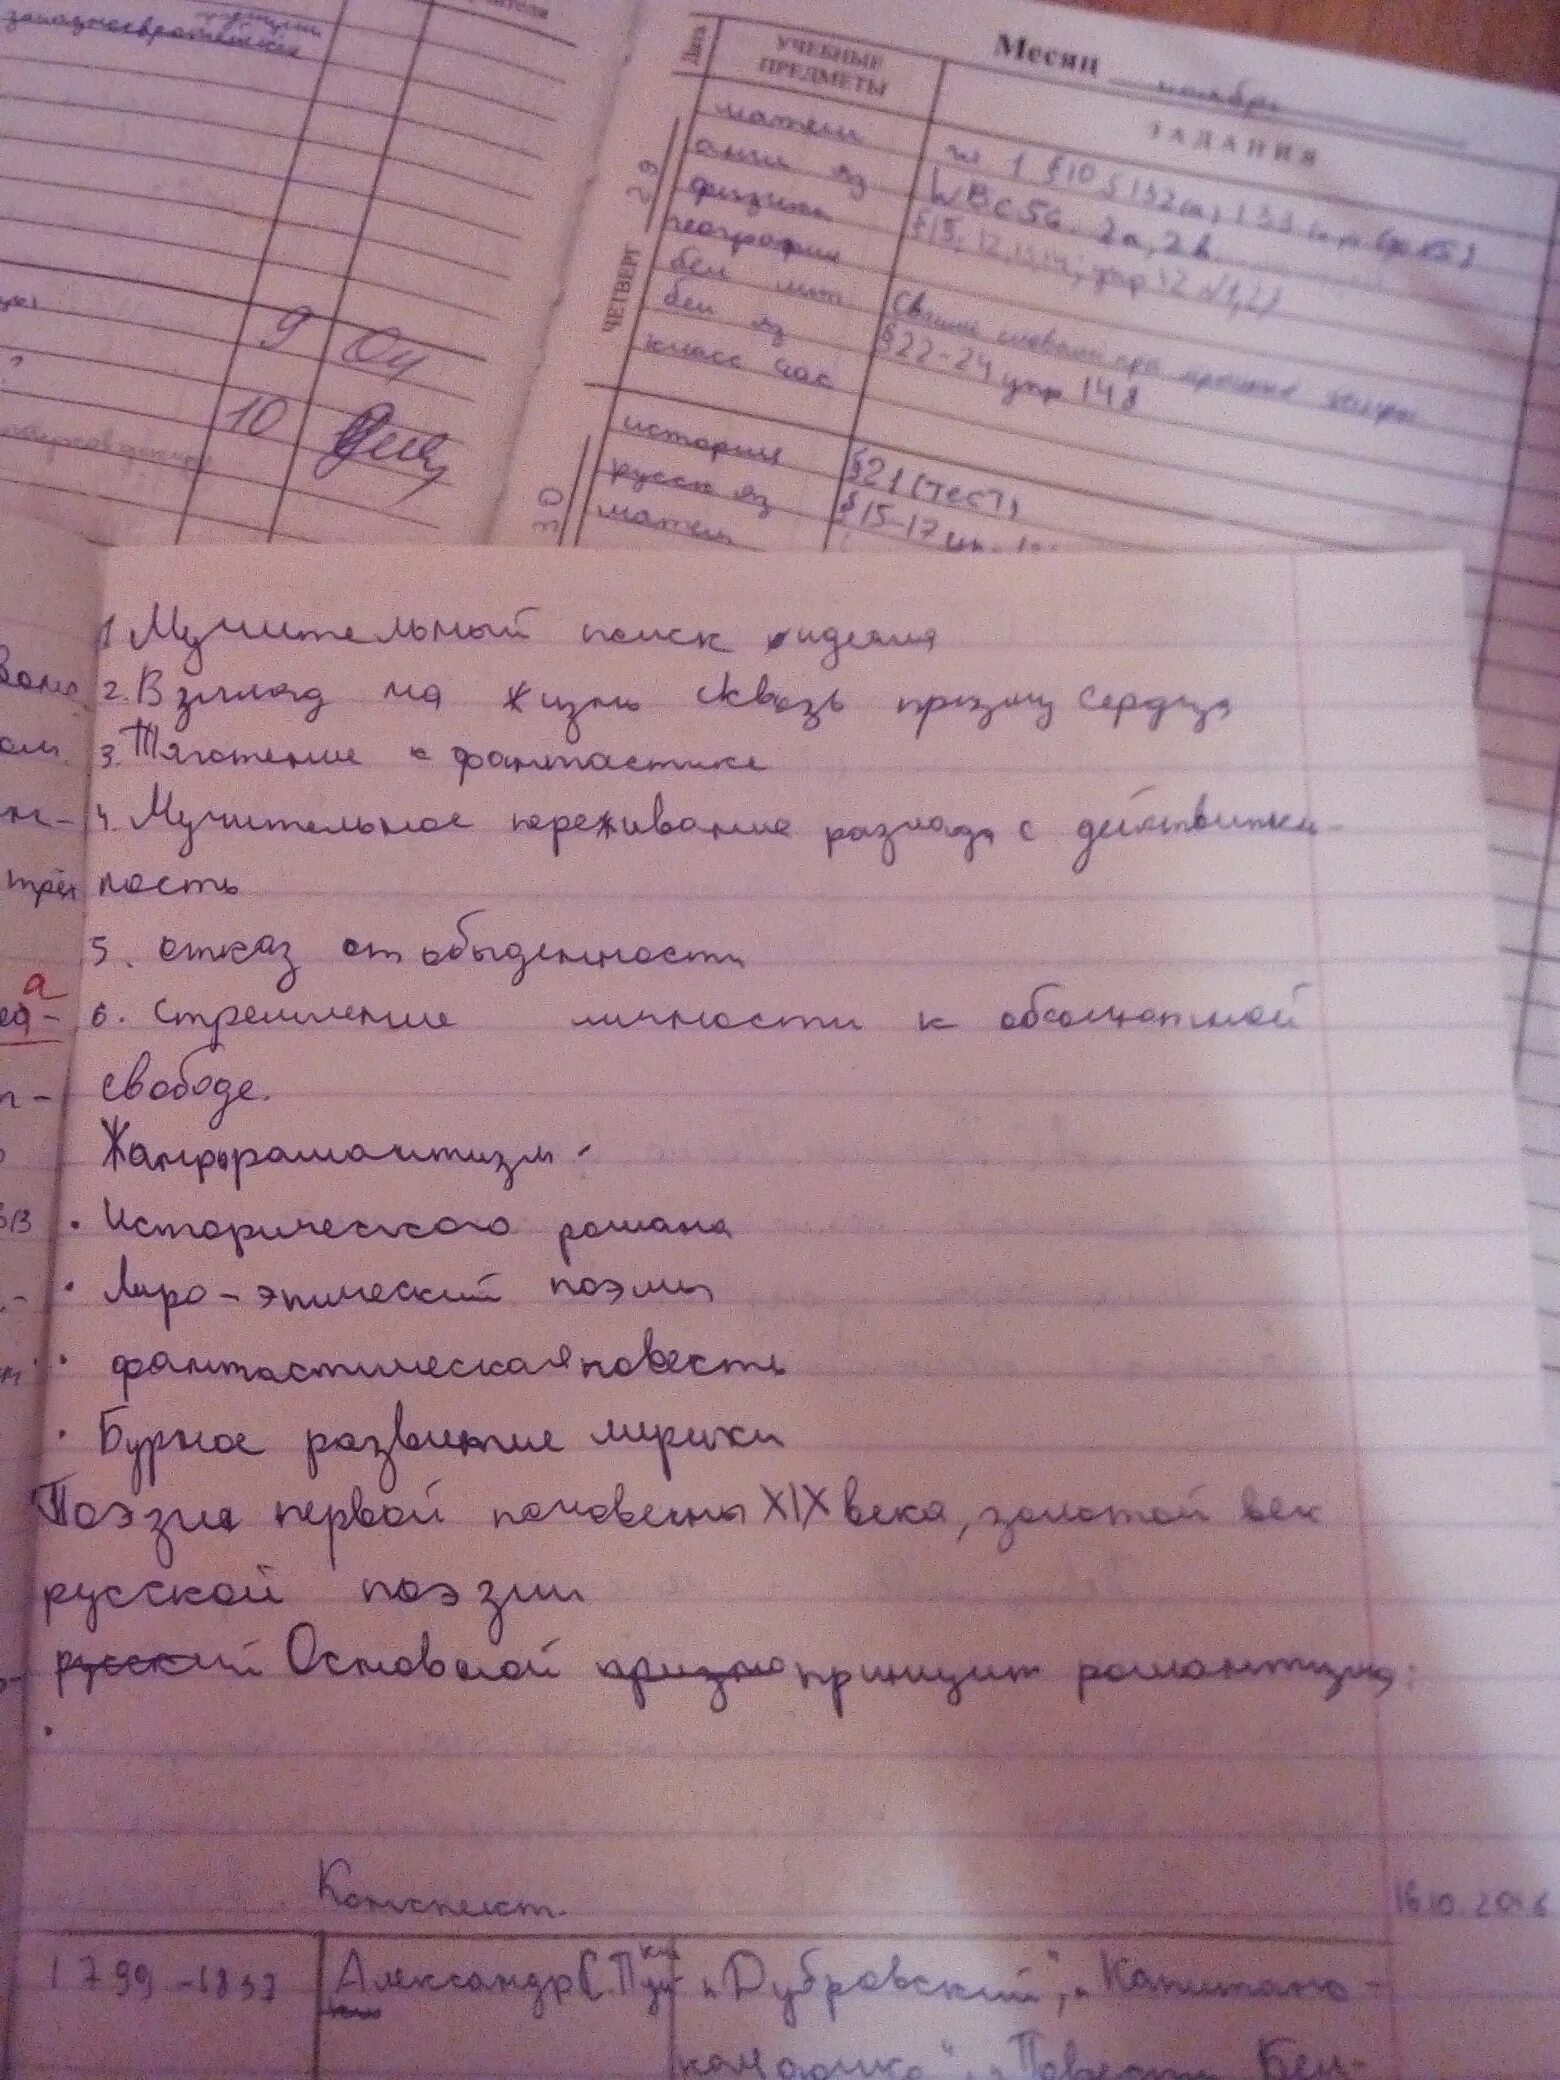 западноевропейские
Месяц ноябрь
Дата УЧЕБНЫЕ ПРЕДМЕТЫ ЗАДАНИЯ
матем
англ яз WB с 56. 2а, 2b
физика
география
бел лит
бел яз §22-24 упр 148
класс час
ЧЕТВЕРГ 29
история §21 (тест)
русск яз §15-17
матем
30
9
10
1 Мучительный поиск идеала
2. Взгляд на жизнь сквозь призму сердца
3. Тяготение к фантастике
4. Мучительное переживание разлада с действитель-
ность
5. отказ от обыденности
6. стремление личности к абсолютной
свободе.
Жанры романтизм:
• Исторического романа
• Лиро-эпический поэмы
• фантастическая повесть
• Бурное развитие лирики
Поэзия первой половины XIX века, золотой век
русской поэзии
русский Основной призна принцип романтизма:
•
Конспект.
1799-1837 Александр С. Пушкин „Дубровский", „Капитанс-
кая дочка", „Повести Бел-